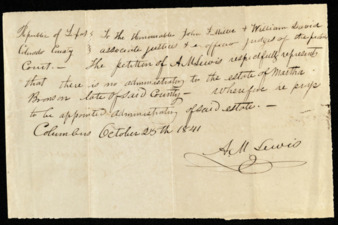 Republic of Texas } To the Honorable John
Colorado County } associate justices & ex officio judges of the probate
Court — The petition of A M Lewis respectfully represents
that there is no administrator to the estate of Martha
Bronson late of said County — wherefore he prays
to be appointed administrator of said estate. —
Columbus October 25th 1841
A M Lewis